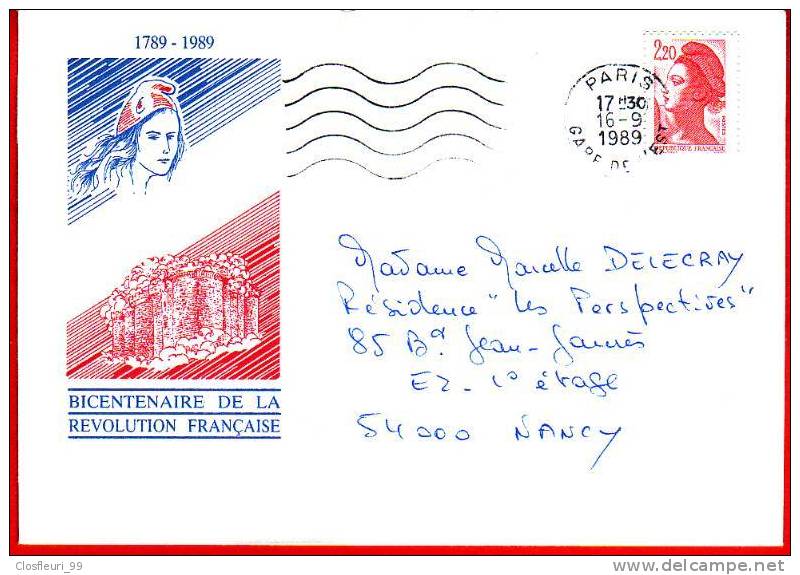 1789 - 1989
BICENTENAIRE DE LA
REVOLUTION FRANÇAISE
PARIS
17H30
16-9
1989
GARE DE L'EST
2,20
POSTES
REPUBLIQUE FRANÇAISE
Madame Marcelle DELECRAY
Résidence "Les Perspectives"
85 Bd Jean-Jaurès
E2 - 1° étage
54000 NANCY
Closfleuri_99
delcampe.net